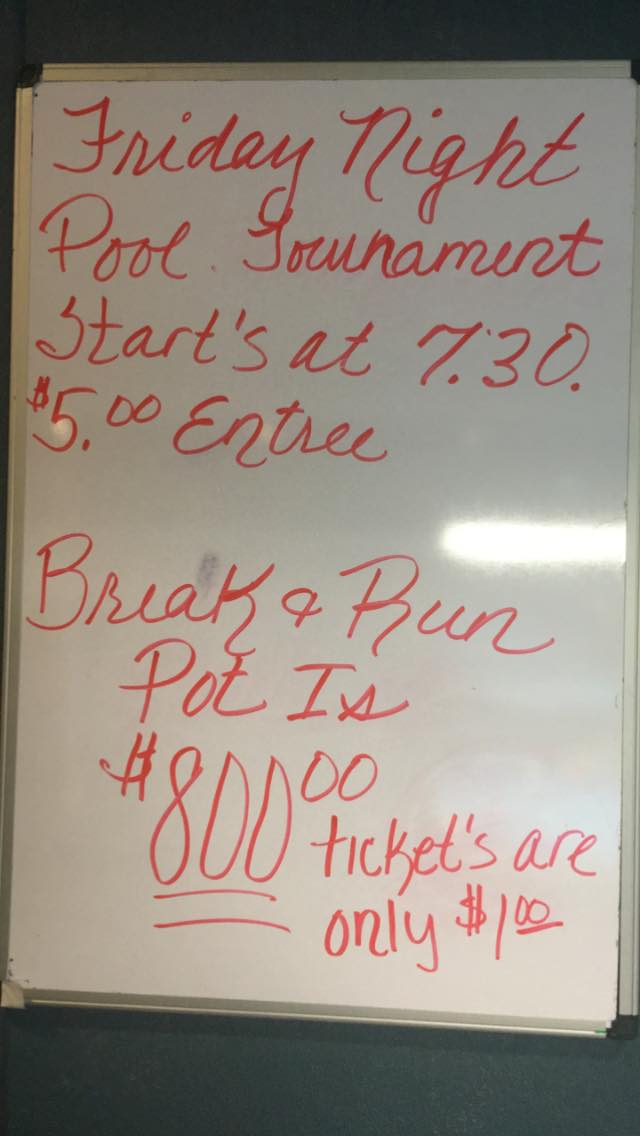 Friday Night
Pool Tournament
Start's at 7:30.
$5.00 Entree
Break & Run
Pot Is
$800 00
ticket's are
only $1 00